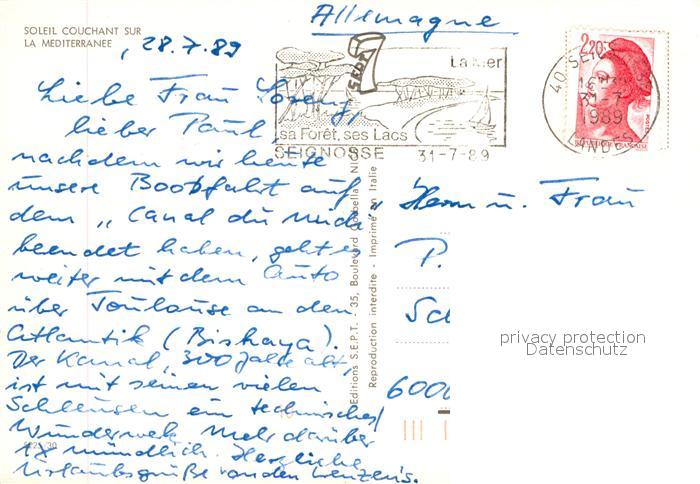 SOLEIL COUCHANT SUR
LA MEDITERRANEE
Allemagne
, 28.7.89
Liebe Frau
lieber Paul,
nachdem wir heute
unsere Bootsfahrt auf
dem „Canal du Midi“
beendet haben, geht es
weiter mit dem Auto
über Toulouse an den
Atlantik (Biskaya).
Der Kanal, 300 Jahre alt,
ist mit seinen vielen
Schleusen ein technisches
Wunderwerk. Mehr darüber
mündlich. Herzliche
Urlaubsgrüße von den Lenzen's.
SEPT 7
La Mer
sa Forêt, ses Lacs
SEIGNOSSE 31-7-89
2,20
40 SEIGNOSSE
31-7
1989
LANDES
REPUBLIQUE FRANÇAISE
POSTES
Editions S.E.P.T. - 35, Boulevard
Reproduction interdite - Imprimé en Italie
Herrn u. Frau
P.
Sc
600
privacy protection
Datenschutz